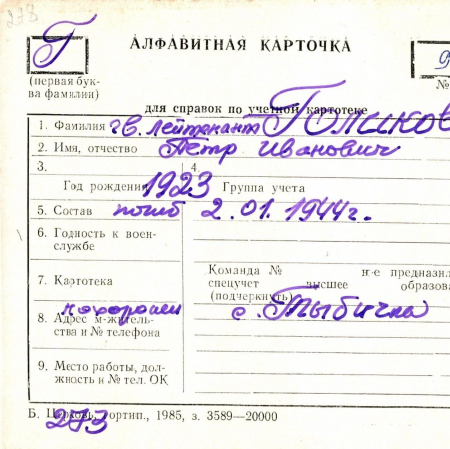 273
Г
АЛФАВИТНАЯ КАРТОЧКА
(первая бук-
ва фамилии)
№
для справок по учетной картотеке
1. Фамилия гв. лейтенант Голиков
2. Имя, отчество Петр Иванович
3. 4.
Год рождения 1923 Группа учета
5. Состав погиб 2.01.1944г.
6. Годность к воен-
службе
7. Картотека
Команда № не предназна
спецучет высшее образова
(подчеркнуть)
похоронен с. Тыбична
8. Адрес м-житель-
ства и № телефона
9. Место работы, дол-
жность и № тел. ОК
Б. Церковь, гортип., 1985, з. 3589—20000
273